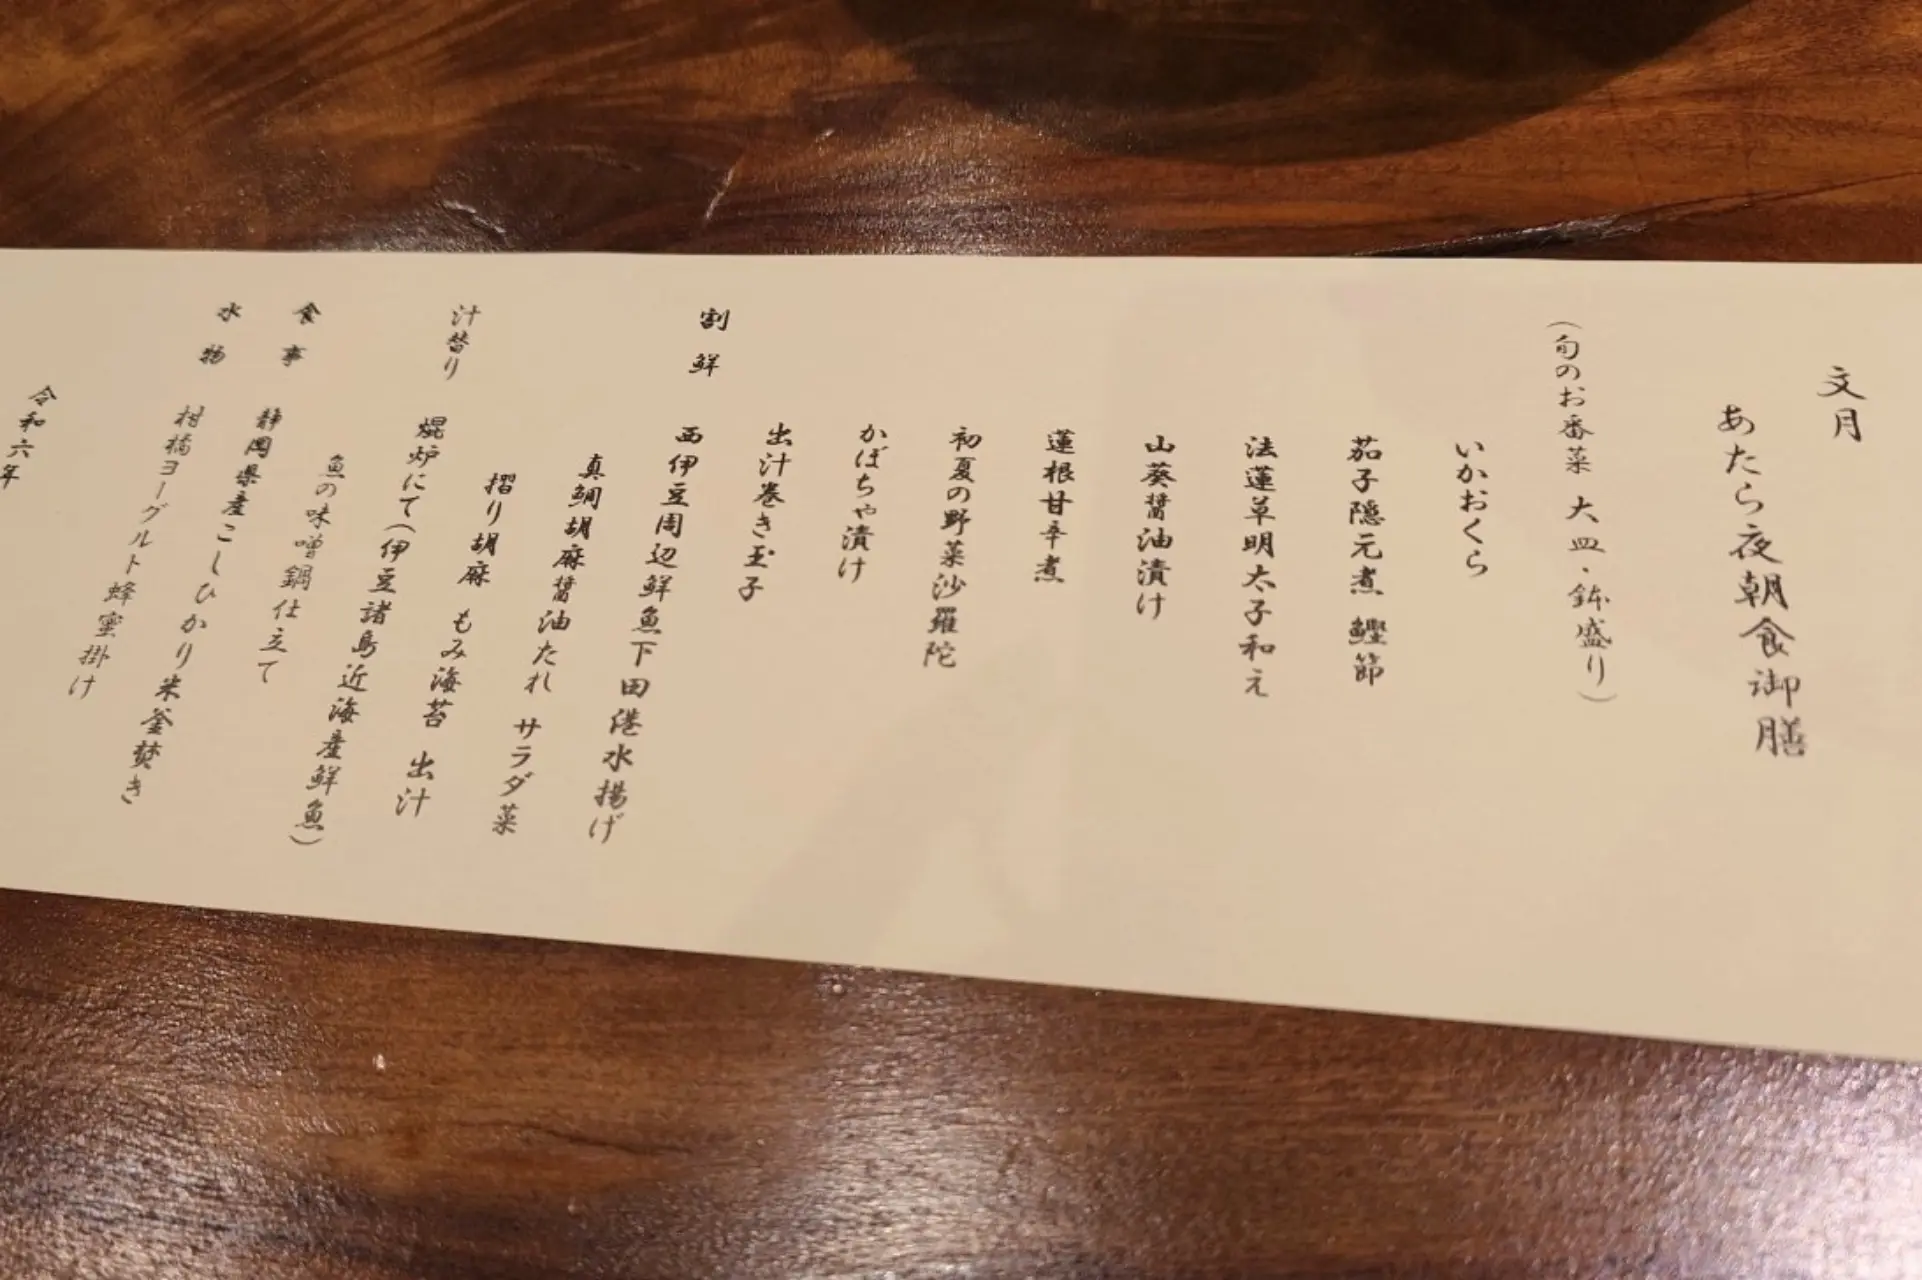 文月
あたら夜朝食御膳
(旬のお番菜 大皿・鉢盛り)
いかおくら
茄子隠元煮 鰹節
法蓮草明太子和え
山葵醤油漬け
蓮根甘辛煮
初夏の野菜沙羅陀
かぼちゃ漬け
出汁巻き玉子
割鮮 西伊豆周辺鮮魚下田港水揚げ
真鯛胡麻醤油たれ サラダ菜
摺り胡麻 もみ海苔 出汁
汁替り 焜炉にて(伊豆諸島近海産鮮魚)
魚の味噌鍋仕立て
食事 静岡県産こしひかり米釜焚き
水物 柑橘ヨーグルト蜂蜜掛け
令和六年